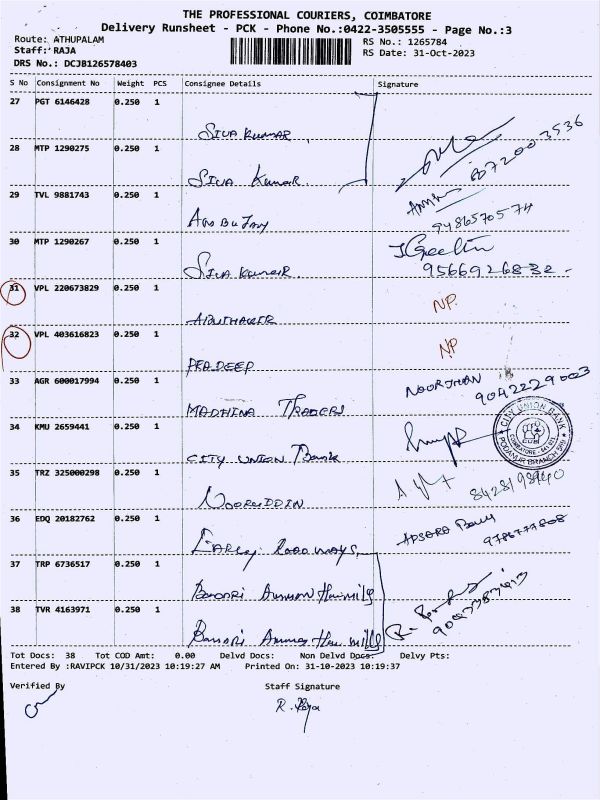 THE PROFESSIONAL COURIERS, COIMBATORE
Delivery Runsheet - PCK - Phone No.:0422-3505555 - Page No.:3
Route: ATHUPALAM
RS No.: 1265784
Staff: RAJA
RS Date: 31-Oct-2023
DRS No.: DCJB126578403
S No Consignment No Weight PCS Consignee Details Signature
27 PGT 6146428 0.250 1
SIVA KUMAR
28 MTP 1290275 0.250 1
8072003536
SIVA KUMAR.
29 TVL 9881743 0.250 1
9486570574
30 MTP 1290267 0.250 1
SIVA KUMAR.
9566926832 -
31 VPL 220673829 0.250 1
NP
32 VPL 403616823 0.250 1
NP
PRADEEP
33 AGR 600017994 0.250 1
NOORJHAN 9042229003
MADHINA TRADERS
34 KMU 2659441 0.250 1
CITY UNION BANK
CITY UNION Bank
35 TRZ 325000298 0.250 1
NOORUDDIN
36 EDQ 20182762 0.250 1
APSARA
Roadways
37 TRP 6736517 0.250 1
38 TVR 4163971 0.250 1
Tot Docs: 38 Tot COD Amt: 0.00 Delvd Docs: Non Delvd Docs: Delvy Pts:
Entered By :RAVIPCK 10/31/2023 10:19:27 AM Printed On: 31-10-2023 10:19:37
Verified By Staff Signature
R. Raja